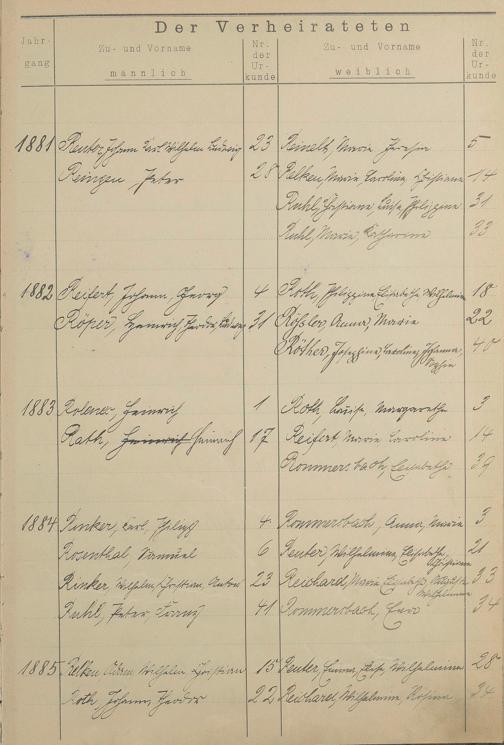 Der Verheirateten
Jahr-gang Zu- und Vorname männlich Nr. der Ur-kunde Zu- und Vorname weiblich Nr. der Ur-kunde
1881 Reuter, Johann Carl Wilhelm Ludwig 23 Reinelt, Maria Theresia 5
Reingen Peter 28 Relken, Marie, Caroline, Christiane 14
Ruhl, Christiane, Luise, Philippine 31
Ruhl, Maria, Katharina 33
1882 Reifert, Johann, Georg 4 Roth, Philippine Elisabetha Wilhelmine 18
Röper, Heinrich, Theodor, Ludwig 31 Rößler, Anna, Marie 22
Röther, Josephine, Caroline, Johanna, Sophie 40
1883 Heinrich 1 Roth, Luise, Margarethe 3
Rath, Heinrich Heinrich 17 Reifert Marie Caroline 14
Rommersbach, Elisabetha 39
1884 Rinker, Carl, Philipp 4 Rommersbach, Anna, Maria 3
Rosenthal, Samuel 6 Reuter, Wilhelmine, Elisabetha, Christiane 21
Rinker, Wilhelm, Christian, Anton 23 Reichard, Marie, Wilhelmine 33
Ruhl, Peter, Franz 41 Rommersbach, Eva 34
1885 Relken Adam Wilhelm Christian 15 Reuter, Emma, Wilhelmine 28
Roth, Johann, Theodor 22 Reichard, Wilhelmine, Rosina 34